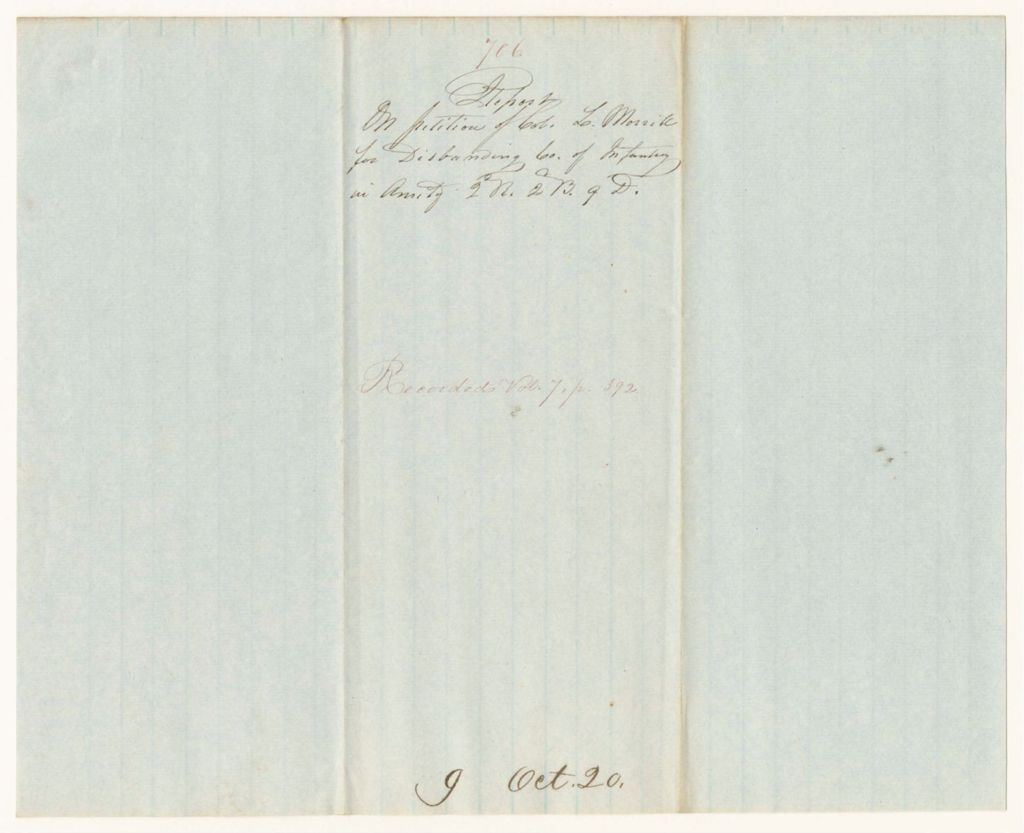 706
Report
On petition of Col. L. Morrill
for Disbanding Co. of Infantry
in Amity 2d R. 2d B. 9 D.
Recorded Vol. 7, p. 392
9 Oct. 20.